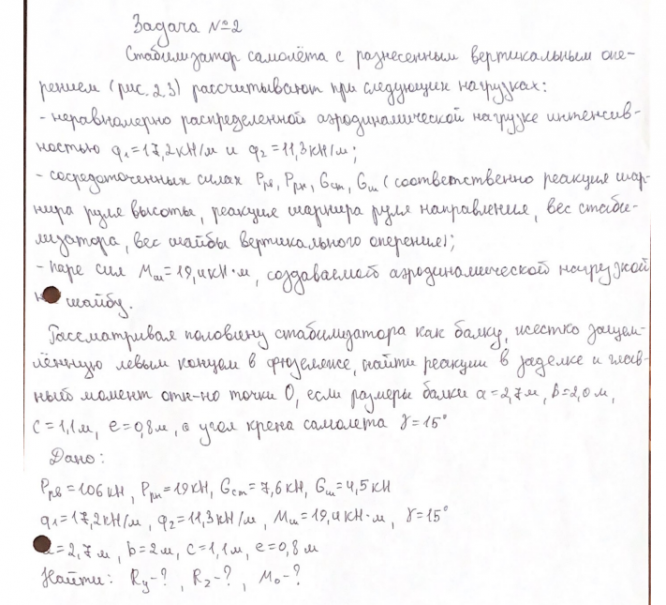 Задача №2
Стабилизатор самолёта с разнесенным вертикальным опе-
рением (рис. 2.3) рассчитывают при следующих нагрузках:
- неравномерно распределенной аэродинамической нагрузке интенсив-
ностью q₁=17,2кН/м и q₂=11,3кН/м;
- сосредоточенных силах Pрв, Pрн, Gст, Gш (соответственно реакция шар-
нира руля высоты, реакция шарнира руля направления, вес стаби-
лизатора, вес шайбы вертикального оперения);
- паре сил Mш=19,4кН·м, создаваемой аэродинамической нагрузкой
шайбу.
Рассматривая половину стабилизатора как балку, жестко защем-
лённую левым концом в фюзеляже, найти реакции в заделке и глав-
ный момент отн-но точки О, если размеры балки a=2,7м, b=2,0м,
c=1,1м, e=0,8м, а угол крена самолета γ=15°
Дано:
Pрв=106кН, Pрн=19кН, Gст=7,6кН, Gш=4,5кН
q₁=17,2кН/м, q₂=11,3кН/м, Mш=19,4кН·м, γ=15°
=2,7м, b=2м, c=1,1м, e=0,8м
Найти: Ry-?, Rz-?, Mo-?